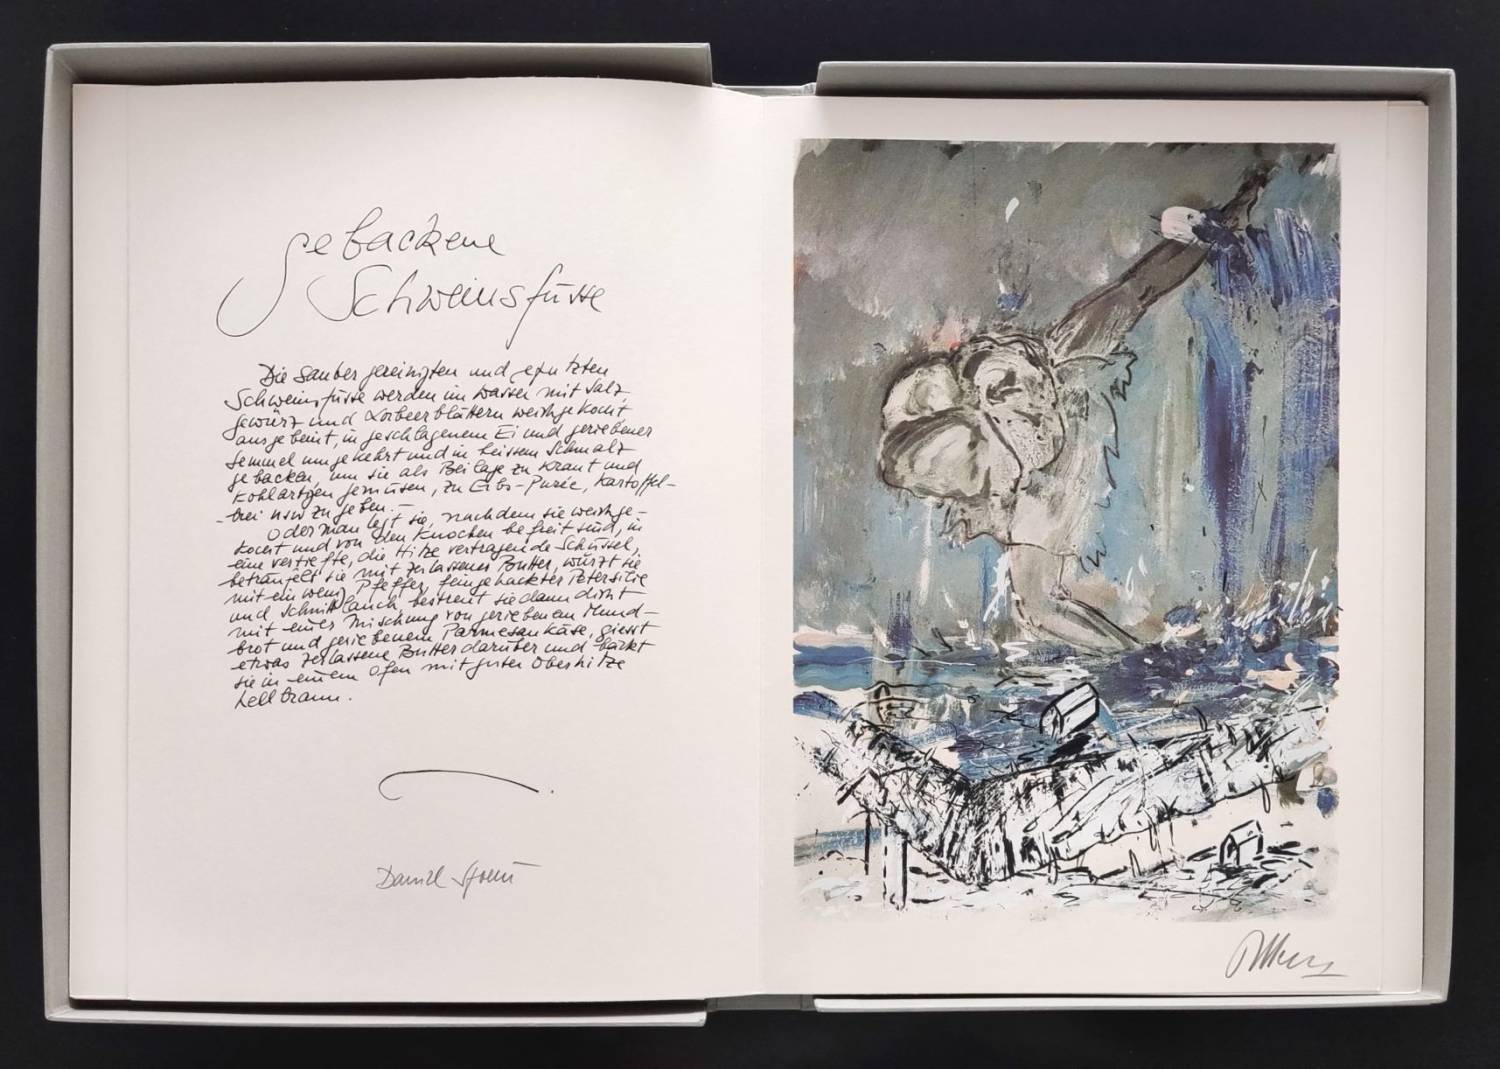 Gebackene
Schweinsfüsse
Die sauber gereinigten und geputzten
Schweinsfüsse werden im Wasser mit Salz,
Gewürz und Lorbeerblättern weichgekocht
ausgebeint, in geschlagenem Ei und geriebener
Semmel umgekehrt und in heissem Schmalz
gebacken, um sie als Beilage zu Kraut und
kohlartigen Gemüsen, zu Erbs-Purée, Kartoffel-
-brei usw zu geben. —
Oder man legt sie, nachdem sie weichge-
kocht und von den Knochen befreit sind, in
eine vertiefte, die Hitze vertragende Schüssel,
beträufelt sie mit zerlassener Butter, würzt sie
mit ein wenig Pfeffer, feingehackter Petersilie
und Schnittlauch, bestreut sie dann dicht
mit einer Mischung von geriebenem Mund-
brot und geriebenem Parmesankäse, giesst
etwas zerlassene Butter darüber und bäckt
sie in einem Ofen mit guter Oberhitze
hellbraun.
Daniel